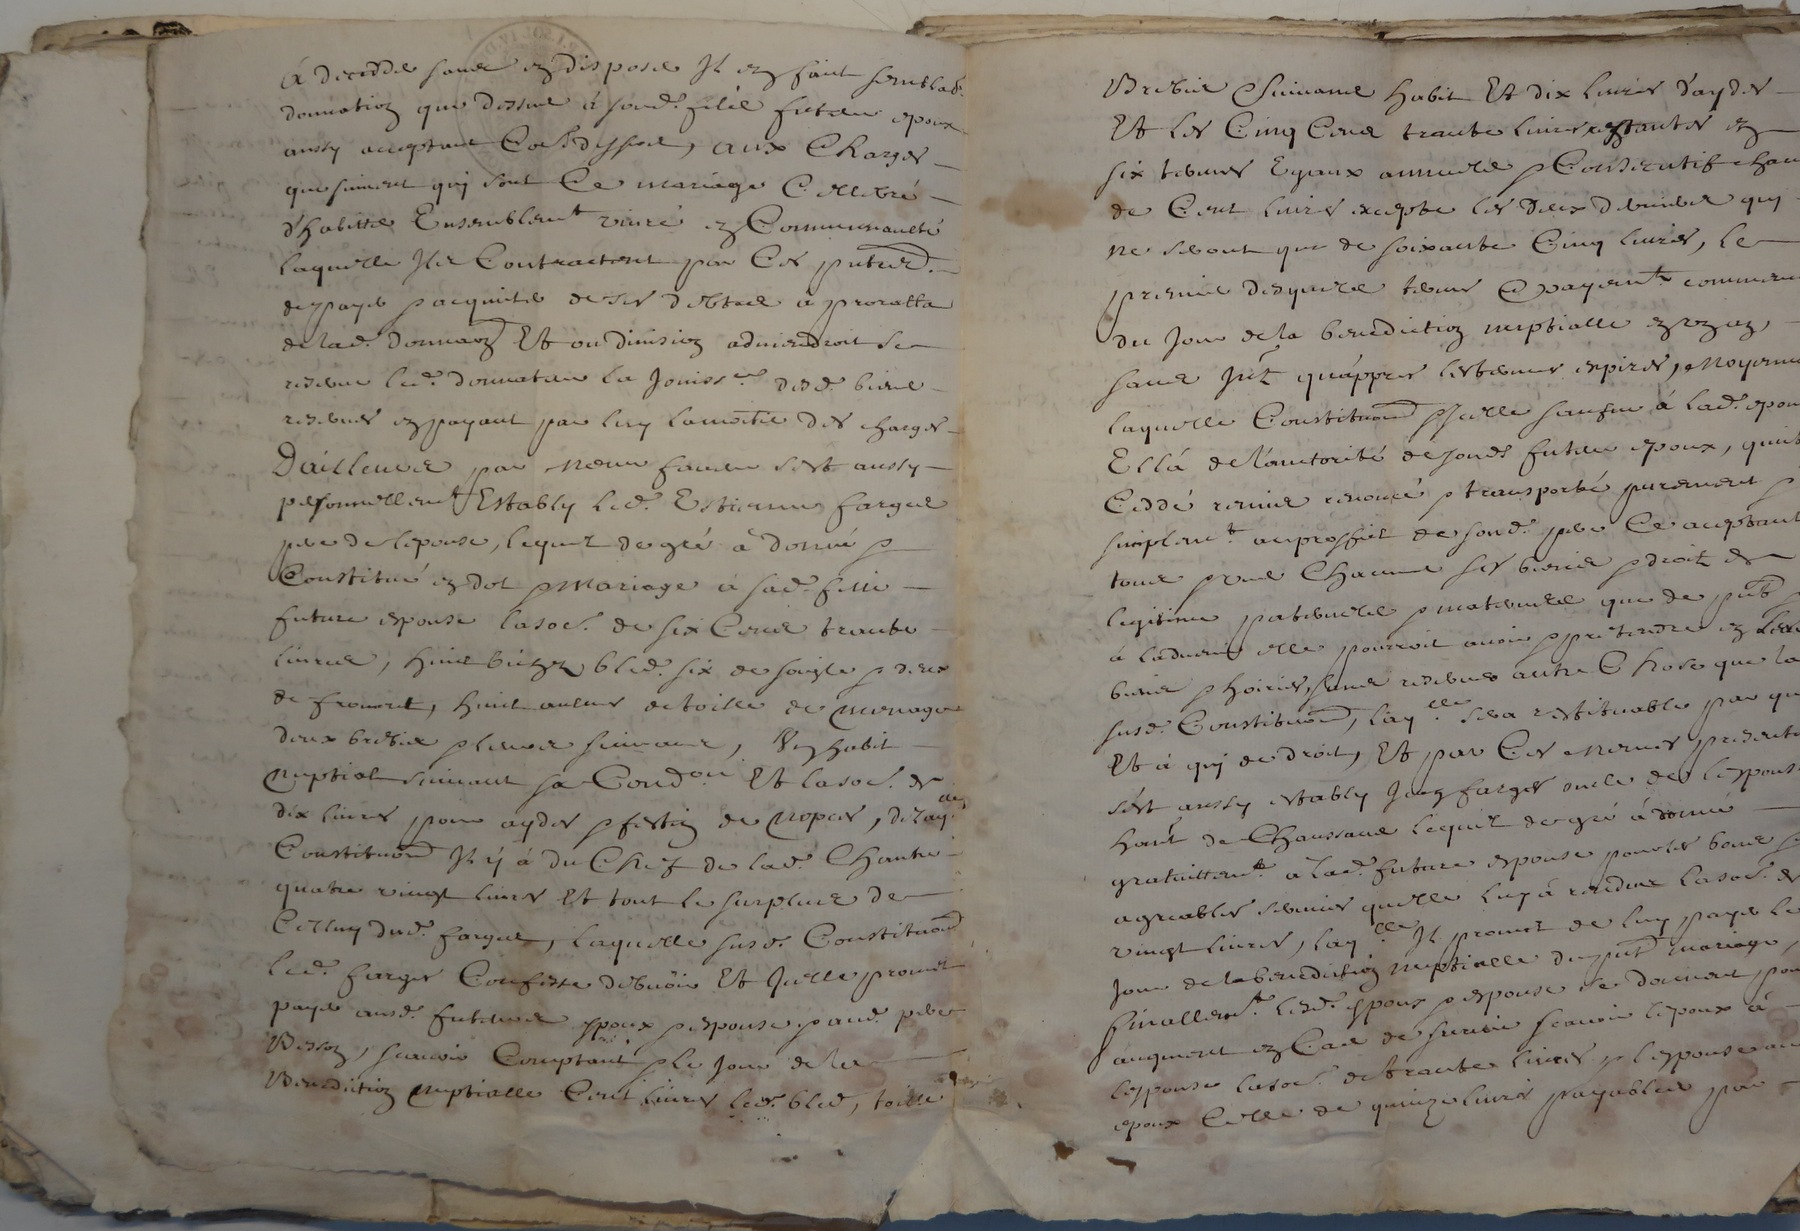 à decedde sans en disposer Il en faict semblab.
donnation que dessus à sond. filie futeur epoux
aussy acceptant Coe dessus, aux Charges
que suivent quy sont Ce mariage Cellebré
d'habitter Ensemblemt vivre en Communaulté
laquelle Ils Contractent par Ces putes.
de payer & acquiter de ses debtes à proratta
de lad. donnaon Et ou division adviendroit se
reserve led. donnataire la Jouissce desd. biens
reservés en payant par luy la moitie des charges
D'ailleurs par mesme faveur s'est aussy
personnellemt Estably led. Estienne fargues
pere de l'epouse, lequel de gré à donné &
Constitué en dot & mariage à sad. fille
future espouse la so. de six Cens trante
livres, huict bled. six de soigle & deux
de froment, huict aulnes de toille de menage
deux brebies pleines suivane, Un habit
nuptial suivant sa Condon Et la so. de
dix livres pour ayder & festin de nopces, de laqlle
Constituon Il y à du Chef de lad. Chantre
quatre vingt livres Et tout le surplus de
Celluy dud. fargues, laquelle susd. Constituon
led. farges Confesse debvoir Et Icelle promet
payer ausd. futeurs epoux & espouse & aud. pere
Besson, scavoir Comptant & le Jour de la
Benediction nuptialle Cent livres led. bled, toille
Brebies suivane habit Et dix livres d'ayder
Et les Cinq Cens trante livres restantes en
six termes Egaux annuels & Consecutifs chan
de Cent livres excepte les deux derniers qui
ne seront que de soixante Cinq livres, le
premier desquels termes & payemts commence
du Jour de la benediction nuptialle en un an,
sans Intt qu'appres les termes expirés, Moyenna
laquelle Constituon & Icelle sauve à lad. epou
Ella de l'auctorité de sond. futeur epoux, quitt
Ceddé remis renoncé & transporté purement &
simplemt au proffict de sond. pere Ce acceptant
tous & uns Chacuns ses biens & droits de
legitime paternelle & maternelle que de put &
à l'advenir elle pourroit avoir & pretendre en leurs
biens & hoiries, sans reserver autre Chose que la
susd. Constituon, laqlle sera restituable par qu
Et à qui de droit, Et par Ces mesmes presente
s'est aussy estably Jean farges oncle de l'espouse
hant de Chaussane lequel de gré à donné
gratuittemt à lad. future espouse pour les bons &
agreables services quelle luy à rendus la so. de
vingt livres, laqlle Il promet de luy payer le
Jour de la benediction nuptialle du put mariage,
finallemt lesd. epoux & espouse se donnent pou
augment en Cas de survie scavoir l'epoux à
l'espouse la so. de trante livres & l'espouse au
epoux Celle de quinze livres payables par